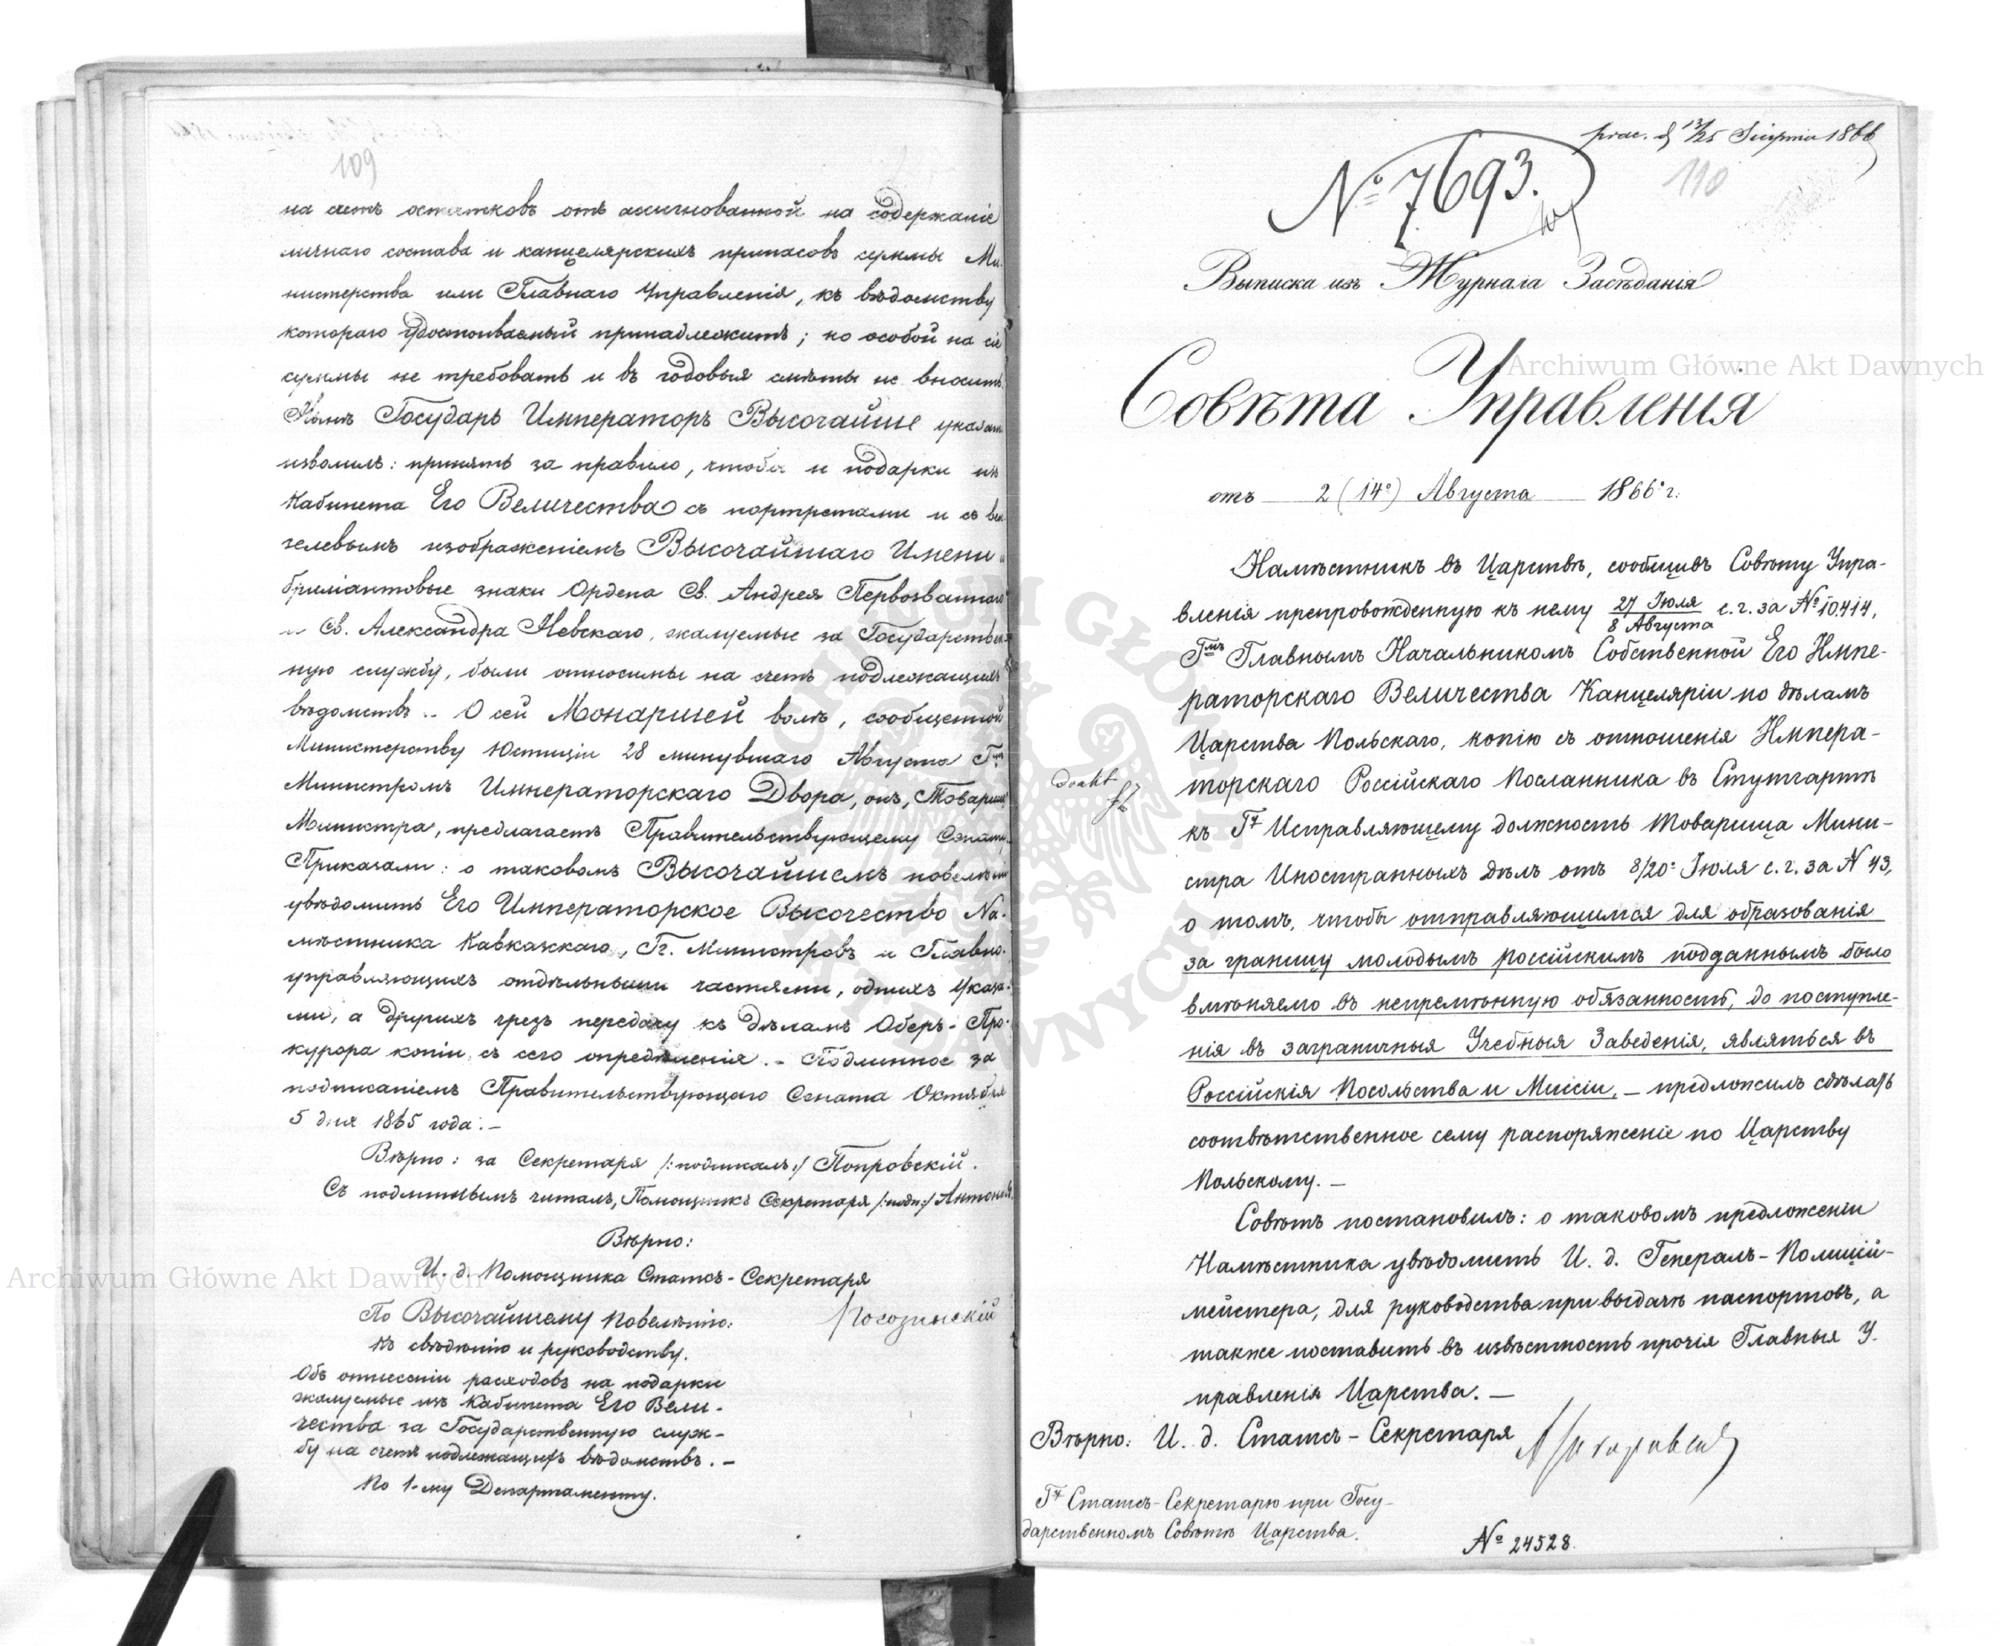 109
на счетъ остатковъ отъ ассигнованной на содержаніе
личнаго состава и канцелярскихъ припасовъ суммы Ми-
нистерства или Главнаго Управленія, къ вѣдомству
котораго удостоиваемый принадлежитъ; но особой на сіе
суммы не требовать и въ годовыя смѣты не вносить.
Нынѣ Государь Императоръ Высочайше указать
изволилъ: принять за правило, чтобы и подарки изъ
Кабинета Его Величества съ портретами и съ вен-
зелевымъ изображеніемъ Высочайшаго Имени и
брилліантовые знаки Ордена Св. Андрея Первозваннаго
и Св. Александра Невскаго, жалуемые за Государствен-
ную службу, были относимы на счетъ подлежащихъ
вѣдомствъ.. О сей Монаршей волѣ, сообщенной
Министерству Юстиціи 28 минувшаго Августа Гмъ
Министромъ Императорскаго Двора, онъ, Товарищъ
Министра, предлагаетъ Правительствующему Сенату.
Приказали: о таковомъ Высочайшемъ повелѣніи
увѣдомить Его Императорское Высочество На-
мѣстника Кавказскаго, Гг. Министровъ и Главно-
управляющихъ отдѣльными частями, однихъ Указа-
ми, а другихъ чрезъ передачу къ дѣламъ Оберъ-Про-
курора копіи съ сего опредѣленія. - Подлинное за
подписаніемъ Правительствующаго Сената Октября
5 дня 1865 года. -
Вѣрно: за Секретаря /:подписалъ:/ Попровскій.
Съ подлиннымъ читалъ, Помощникъ Секретаря /:подп:/
Вѣрно:
И. д. Помощника Статсъ-Секретаря
По Высочайшему повелѣнію:
Къ свѣдѣнію и руководству.
Объ отнесеніи расходовъ на подарки
жалуемые изъ Кабинета Его Вели-
чества за Государственную служ-
бу на счетъ подлежащихъ вѣдомствъ. -
По 1-му Департаменту.
prac. d. 13/25 Sierpnia 1866
110
№ 7693.
Выписка изъ Журнала Засѣданія
Совѣта Управленія
отъ 2 (14º) Августа 1866 г.
Намѣстникъ въ Царствѣ, сообщивъ Совѣту Упра-
вленія препровожденную къ нему 27 Іюля / 8 Августа с. г. за № 10.414,
Гмъ Главнымъ Начальникомъ Собственной Его Импе-
раторскаго Величества Канцеляріи по дѣламъ
Царства Польскаго, копію съ отношенія Импера-
торскаго Россійскаго Посланника въ Стутгартѣ
къ Гу Исправляющему должность Товарища Мини-
стра Иностранныхъ Дѣлъ отъ 8/20 Іюля с. г. за № 43,
о томъ, чтобы отправляющимся для образованія
за границу молодымъ россійскимъ подданнымъ было
вмѣняемо въ непремѣнную обязанность, до поступле-
нія въ заграничныя Учебныя Заведенія, являться въ
Россійскія Посольства и Миссіи, - предложилъ сдѣлать
соотвѣтственное сему распоряженіе по Царству
Польскому. -
Совѣтъ постановилъ: о таковомъ предложеніи
Намѣстника увѣдомить И. д. Генералъ-Полиций-
мейстера, для руководства при выдачѣ паспортовъ, а
также поставить въ извѣстность прочія Главныя У-
правленія Царства. -
Вѣрно: И. д. Статсъ-Секретаря
Гу Статсъ-Секретарю при Госу-
дарственномъ Совѣтѣ Царства.
№ 24528.
Archiwum Główne Akt Dawnych
Archiwum Główne Akt Dawnych
ARCHIWUM GŁÓWNE AKT DAWNYCH